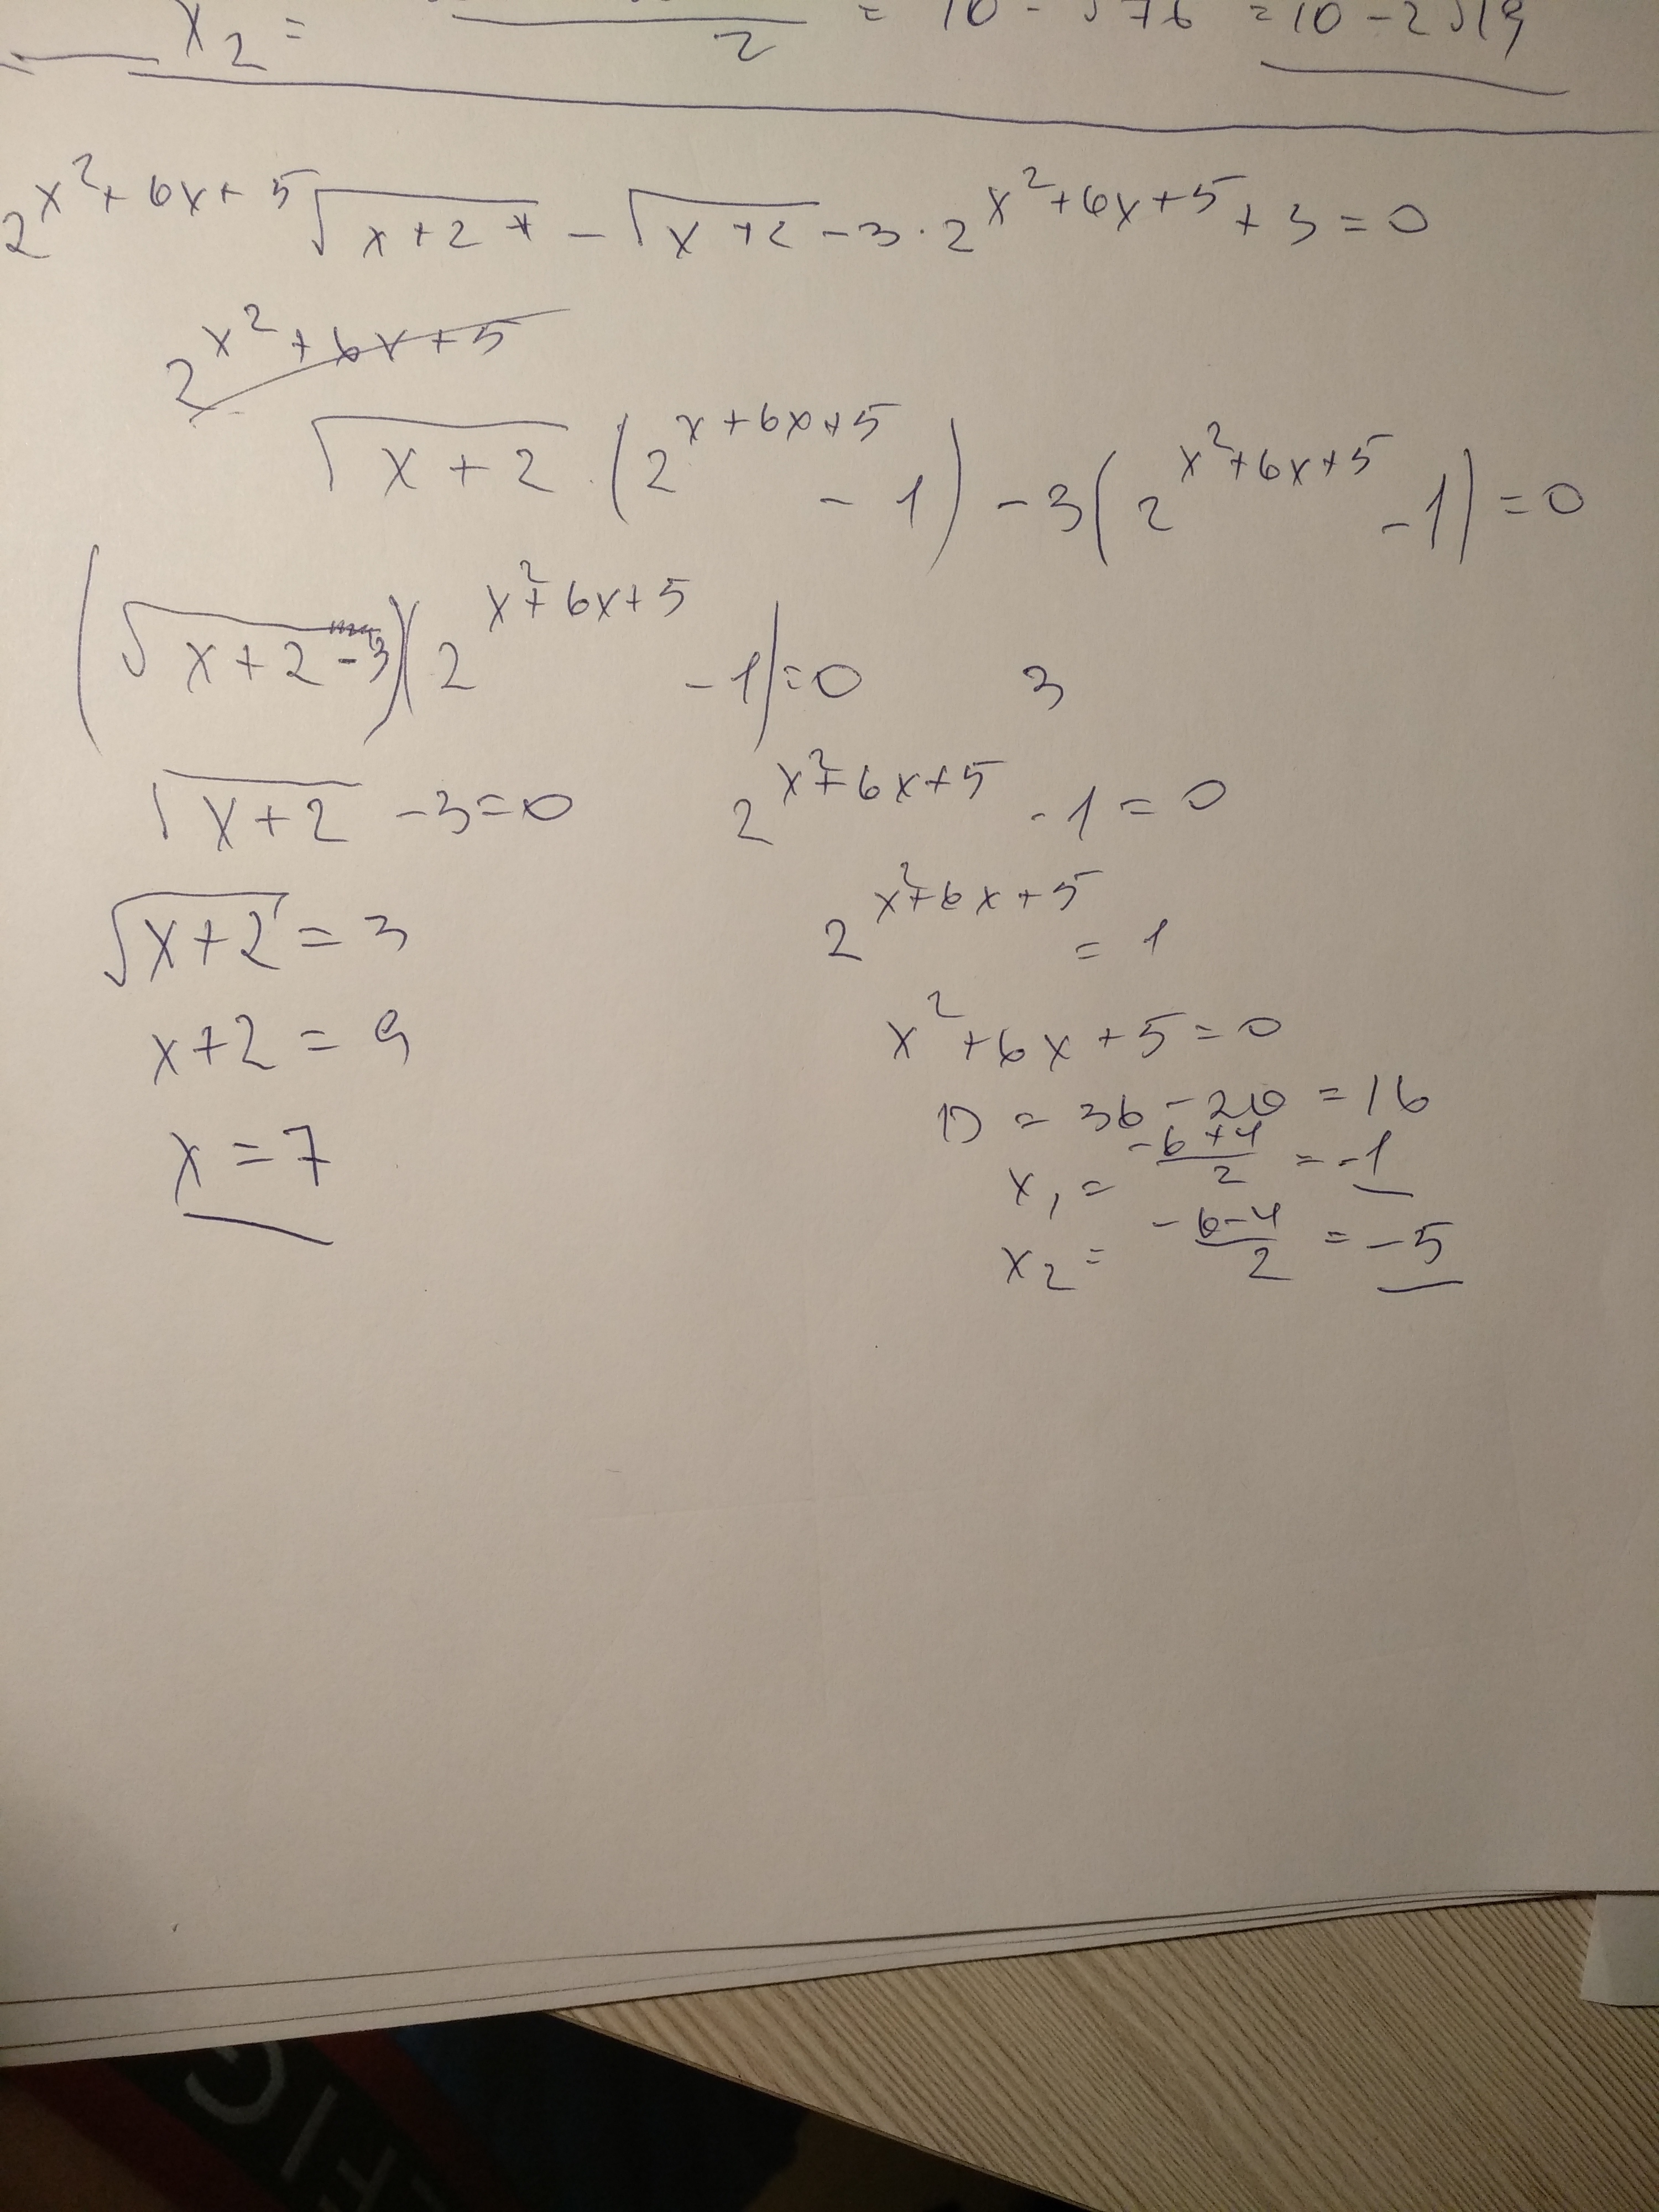 x₂ = ―/2 = 10 - √76 = 10 - 2√19
2^(x²+6x+5) √(x+2 +) - √(x+2) - 3 · 2^(x²+6x+5) + 3 = 0
2^(x²+6x+5)
√(x+2) · (2^(x+6x+5) - 1) - 3(2^(x²+6x+5) - 1) = 0
(√(x+2) - 3)(2^(x²+6x+5) - 1) = 0 3
√(x+2) - 3 = 0 2^(x²+6x+5) - 1 = 0
√(x+2) = 3 2^(x²+6x+5) = 1
x+2 = 9 x²+6x+5 = 0
D = 36 - 20 = 16
x = 7 x₁ = (-6+4)/2 = -1
x₂ = (-6-4)/2 = -5